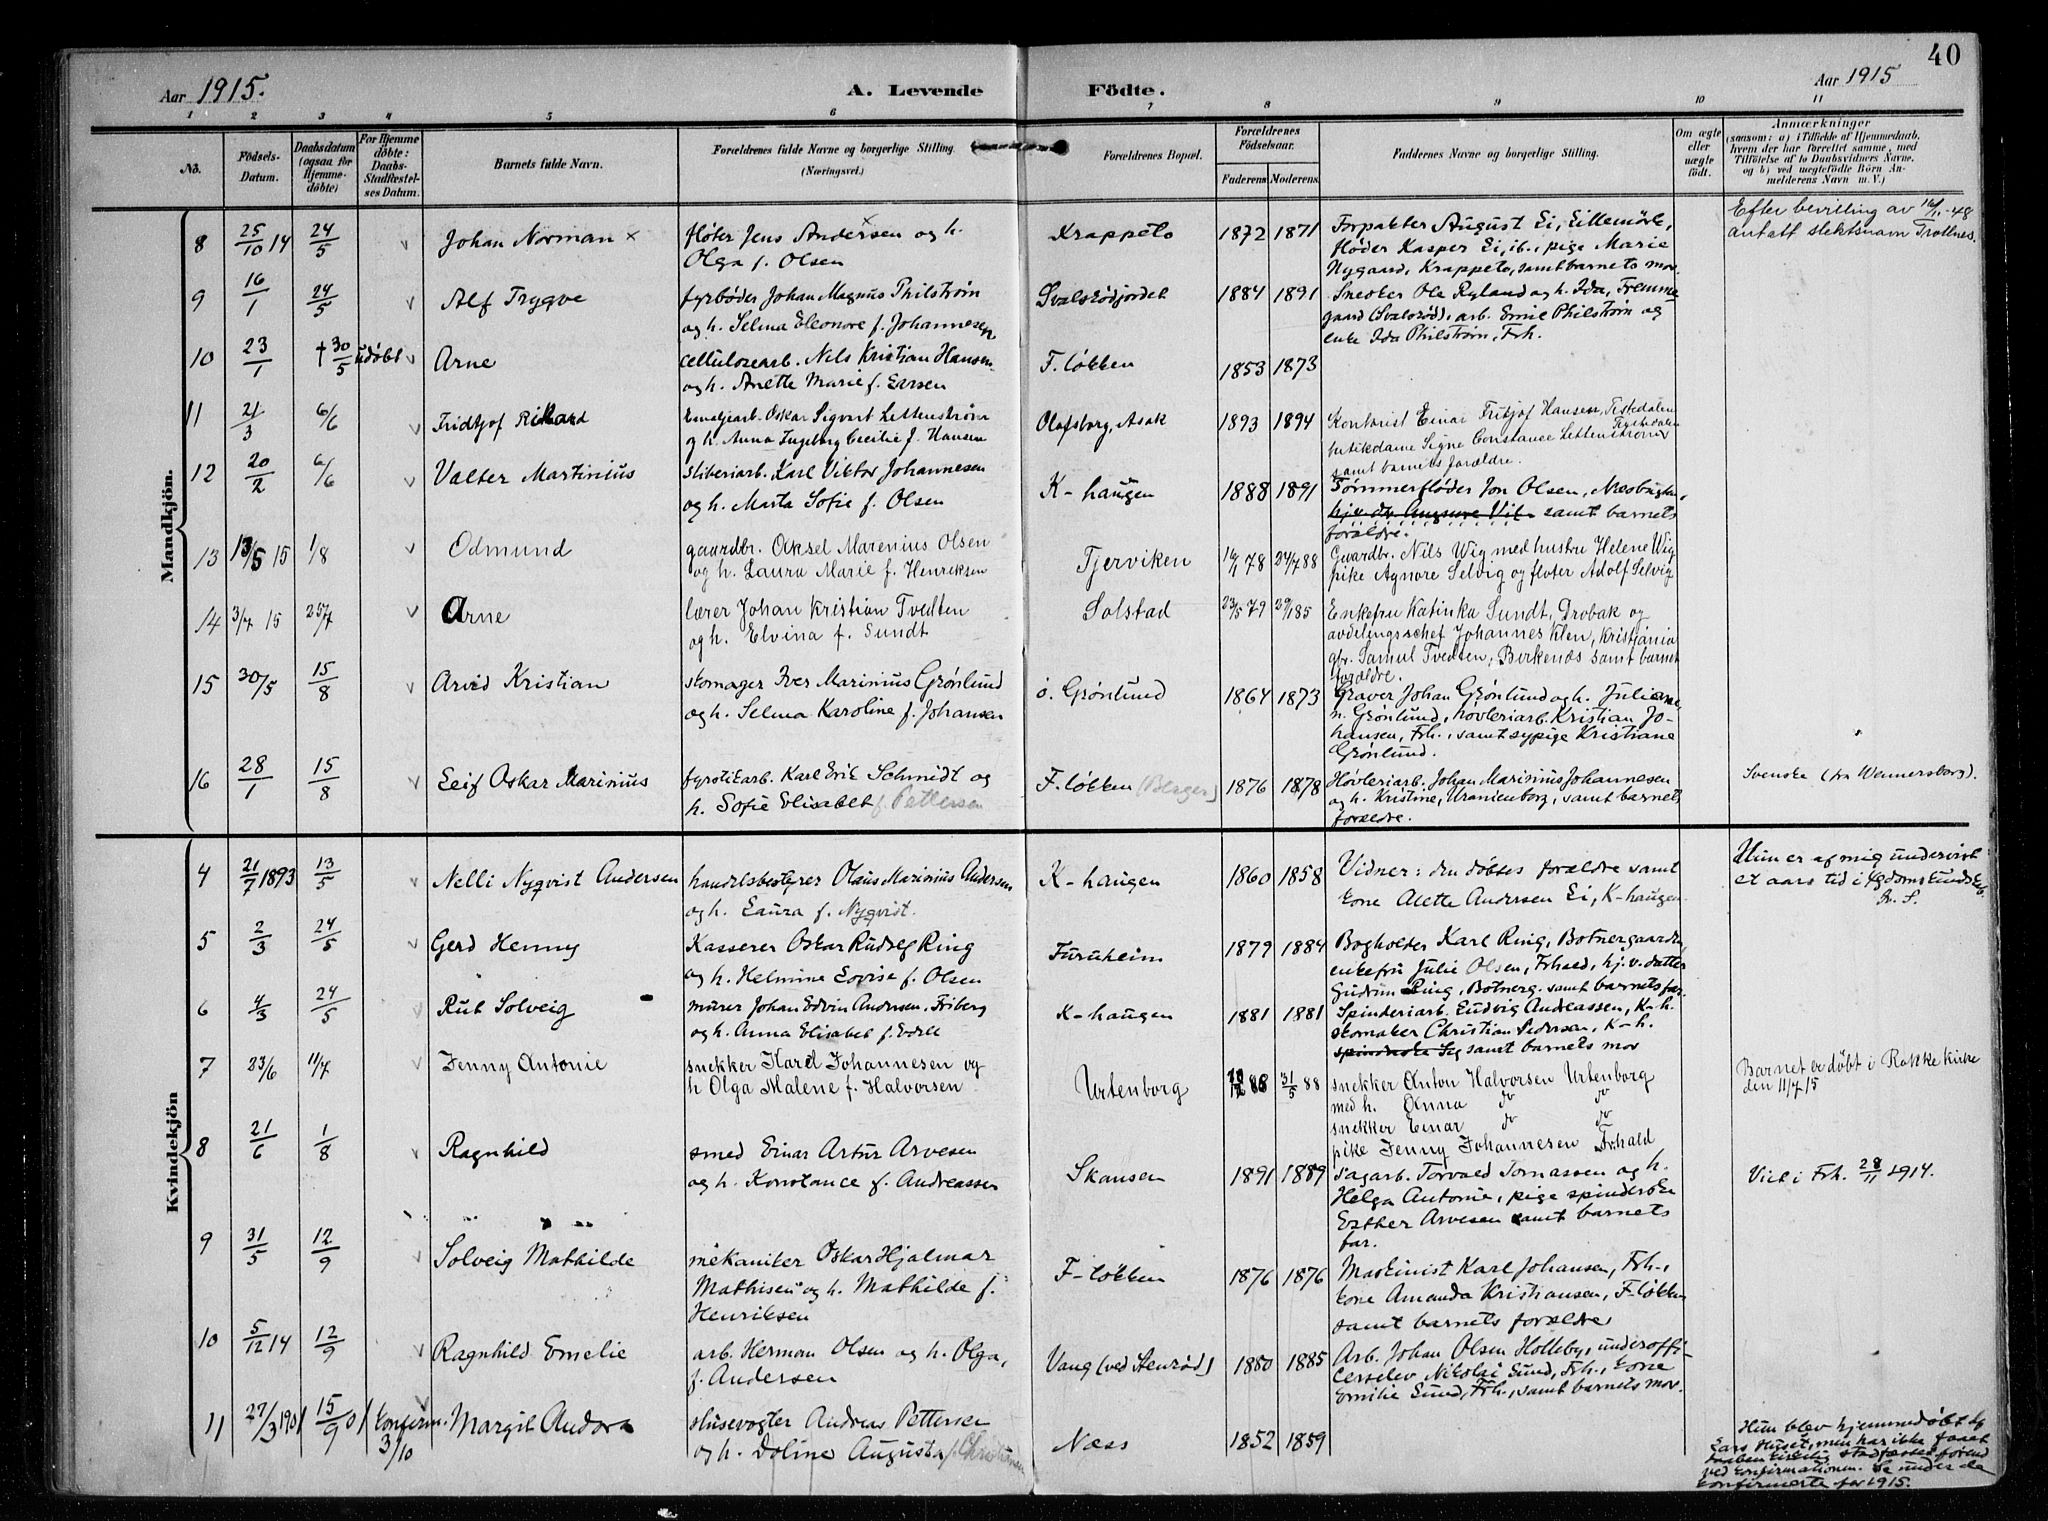 40
Aar 1915.
A. Levende
Födte.
Aar 1915
1 2 3 4 5 6 7 8 9 10 11
No.
Födsels-Datum.
Daabsdatum (ogsaa for Hjemme-döbte)
For Hjemme döbte: Daabs-Stadfæstelses Datum.
Barnets fulde Navn.
Forældrenes fulde Navne og borgerlige Stilling. (Næringsvei.)
Forældrenes Bopæl.
Forældrenes Födselsaar.
Faderens Moderens
Faddernes Navne og borgerlige Stilling.
Om ægte eller uægte födt.
Anmærkninger
(saasom: a) i Tilfælde af Hjemmedaab, hvem der har forrettet samme, med Tilföielse af to Daabsvidners Navne, og b) ved uægtefödte Börn Anmelderens Navn m. V.)
Mandkjön.
8 25/10 14 24/5 Johan Norman x fløter Jens Andersen og h. Krappeto 1872 1871 Forpakter August Ei, Lillemörk, Efter bevilling av 16/11-48
Olga f. Olsen fløder Kasper Ei, ib., pige Marie antatt slektsnavn Trollnes.
Nygaard, Krappeto, samt barnets mor.
9 16/1 24/5 Alf Trygve fyrbøder Johan Magnus Philstrøm Svalerødjordet 1884 1891 Snecker Ole Ryland og h. Ida, Fremme
og h. Selma Eleonore f. Johannesen gaard (Svalerød), arb. Emil Philstrøm og
enke Ida Philstrøm, Frh.
10 23/1 † 30/5 udøbt Arne cellulosearb. Nils Kristian Hansen F. løkken 1853 1873
og h. Anette Marie f. Larsen
11 21/3 6/6 Fridtjof Rikard Emaljearb. Oskar Sigvart Lettenstrøm Olafsborg, Asak 1893 1894 Kontorist Einar Fritjof Hansen, Tistedalen
og h. Anna Ingeborg Cecilie f. Hansen butikdame Signe Constance Lettenstrøm Tistedalen
samt barnets forældre.
12 20/2 6/6 Valter Martinius sliberiarb. Karl Viktor Johannesen K-haugen 1888 1891 Tømmerfløder Jon Olsen,
og h. Marta Sofie f. Olsen samt barnets
forældre.
13 13/5 15 1/8 Odmund gaardbr. Aksel Marenius Olsen Tjerviken 16/1 78 24/7 88 Gaardbr. Nils Wig med hustru Helene Wig
og h. Laura Marie f. Henriksen pike Agnore Selvig og fløter Adolf Selvig
14 3/4 15 25/7 Arne lærer Johan Kristian Tvedten Solstad 23/5 79 29/1 85 Enkefru Katinka Sundt, Drøbak og
og h. Elvina f. Sundt avdelingsschef Johannes Klen, Kristiania
gbr. Samul Tvedten, Birkenæs samt barnets
forældre.
15 30/5 15/8 Arvid Kristian skomager Iver Marinius Grønlund ö. Grønlund 1864 1873 Graver Johan Grønlund og h. Juliane,
og h. Selma Karoline f. Johansen n. Grønlund, høvleriarb. Kristian Jo-
hansen, Frh., samt sypige Kristiane
Grønlund.
16 28/1 15/8 Leif Oskar Marinius fyrstikarb. Karl Erik Schmidt og F. løkken (Berger) 1876 1878 Høvleriarb. Johan Marinius Johannesen Svenske (fra Wennersborg).
h. Sofie Elisabet f. Pettersen og h. Kristine, Uranienborg, samt barnets
forældre.
Kvindekjön
4 21/7 1893 13/5 Nelli Nyqvist Andersen handelsbestyrer Olaus Marinius Andersen K-haugen 1860 1858 Vidner: den døbtes forældre samt Hun er af mig undervist
og h. Laura f. Nyqvist. kone Alette Andersen Ei, K-haugen et aars tid i
5 2/3 24/5 Gerd Henny Kasserer Oskar Rudolf Ring Furuheim 1879 1884 Bogholder Karl Ring, Botnergaarden
og h. Helmine Lovise f. Olsen enkefru Julie Olsen, Frhald, hj. v. datter
Gudrun Ring, Botnerg. samt barnets far.
6 4/3 24/5 Rut Solveig murer Johan Edvin Andersen, Friberg K-haugen 1881 1881 Spinderiarb. Ludvig Andreassen, K-h.
og h. Anna Elisabet f. skomaker Christian Pedersen, K-h.
samt barnets mor
7 23/6 11/7 Jenny Antonie snekker Karl Johannesen og Urtenborg 88 31/5 88 snekker Anton Halvorsen Urtenborg Barnet er døbt i Rokke kirke
h Olga Malene f. Halvorsen med h. Anna do do den 11/7 15
snekker Einar do do
pike Jenny Johannesen Frhald
8 21/6 1/8 Ragnhild smed Einar Artur Arvesen Skansen 1891 1889 sagarb. Torvald Tomassen og h. Viet i Frh. 28/11 1914.
og h. Konstance f. Andreassen Helga Antonie, pige spinderske
Esther Arvesen samt barnets
far.
9 31/5 12/9 Solveig Mathilde mekaniker Oskar Hjalmar F-løkken 1876 1876 Maskinist Karl Johansen, Frh.,
Mathisen og h. Mathilde f. kone Amanda Kristiansen, F-løkken
Henriksen samt barnets forældre
10 5/12 14 12/9 Ragnhild Emelie arb. Herman Olsen og h. Olga, Vang (ved Stenrød) 1880 1885 Arb. Johan Olsen Holleby, underoffi-
f. Andersen cerselev Nikolai Lund, Frh., kone
Emilie Lund, Frh., samt barnets mor.
11 27/3 1901 15/9 01 Konfirm. 3/10 Margit Andora slusevogter Andreas Petterse Næss 1852 1859 Hun blev hjemmedøbt af
og h. Doline Augusta f. Christiansen Lars Huset, men har ikke faaet
daaben stadfæstet førend
ved konfirmationen. Se under de
konfirmerte for 1915.